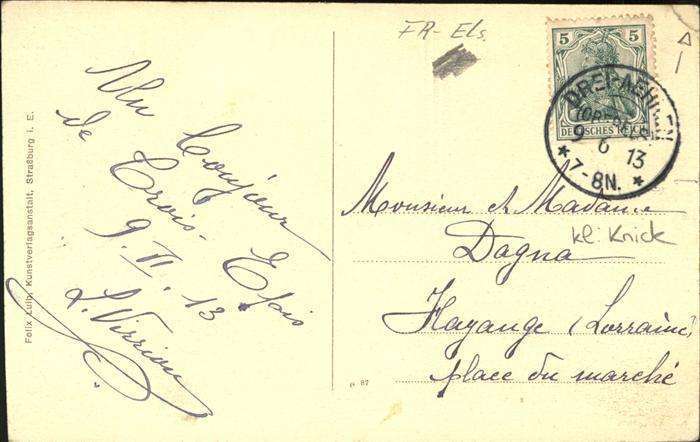 FR-Els.
Un bonjour
de
Trois-Epis
9.VI.13
L. Virrion
5 5
DEUTSCHES REICH
DREI-AEHREN
(OBERELS.)
9 6 13
* 7-8N. *
Monsieur et Madame
Dagna
kl. Knick
Hayange (Lorraine)
place du marché
P 87
Felix Luib, Kunstverlagsanstalt, Straßburg i. E.